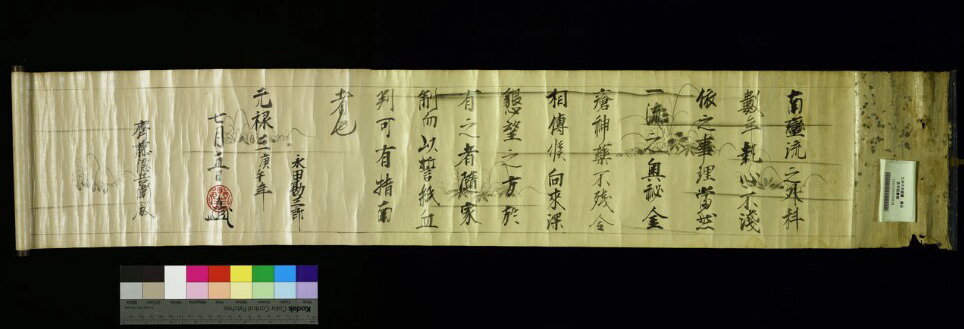 南蠻流之外科
數年執心不淺
依之事理當然
一流之奥秘金
瘡神藥不残令
相傳候向来深
懇望之方於
有之者備家
制而以誓紙血
判可有指南
者也
永田勘三郎
元禄三庚午年
七月
Kodak
Color Control Patches